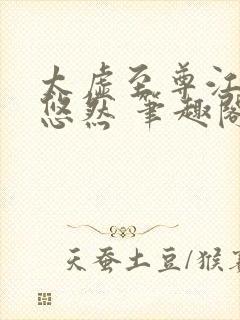 太虚至尊江
悠然 笔趣阁
天蚕土豆/猴